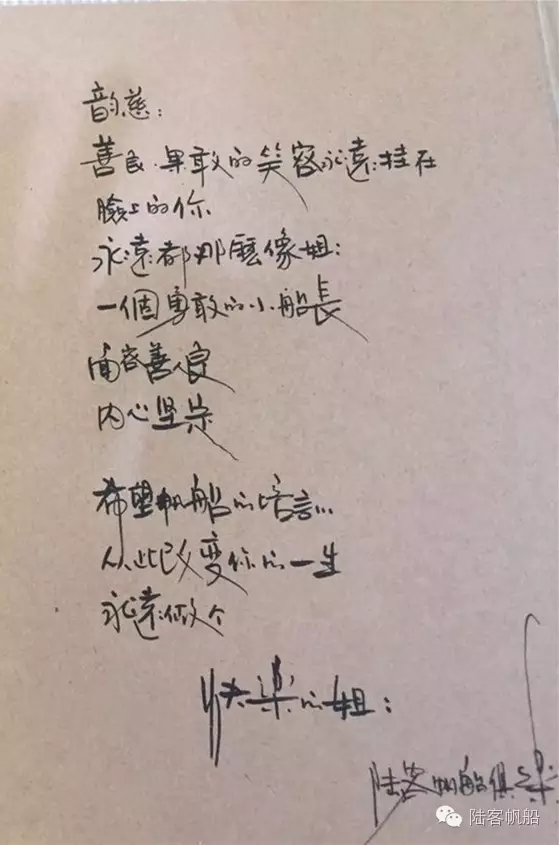 韵慈：
善良、果敢的笑容永遠挂在
臉上的你
永遠都那麼像姐：
一個勇敢的小船長
面容善良
内心坚实
希望帆船的培训
从此改变你的一生
永遠做个
快樂的姐：
陆客帆船俱乐
陆客帆船